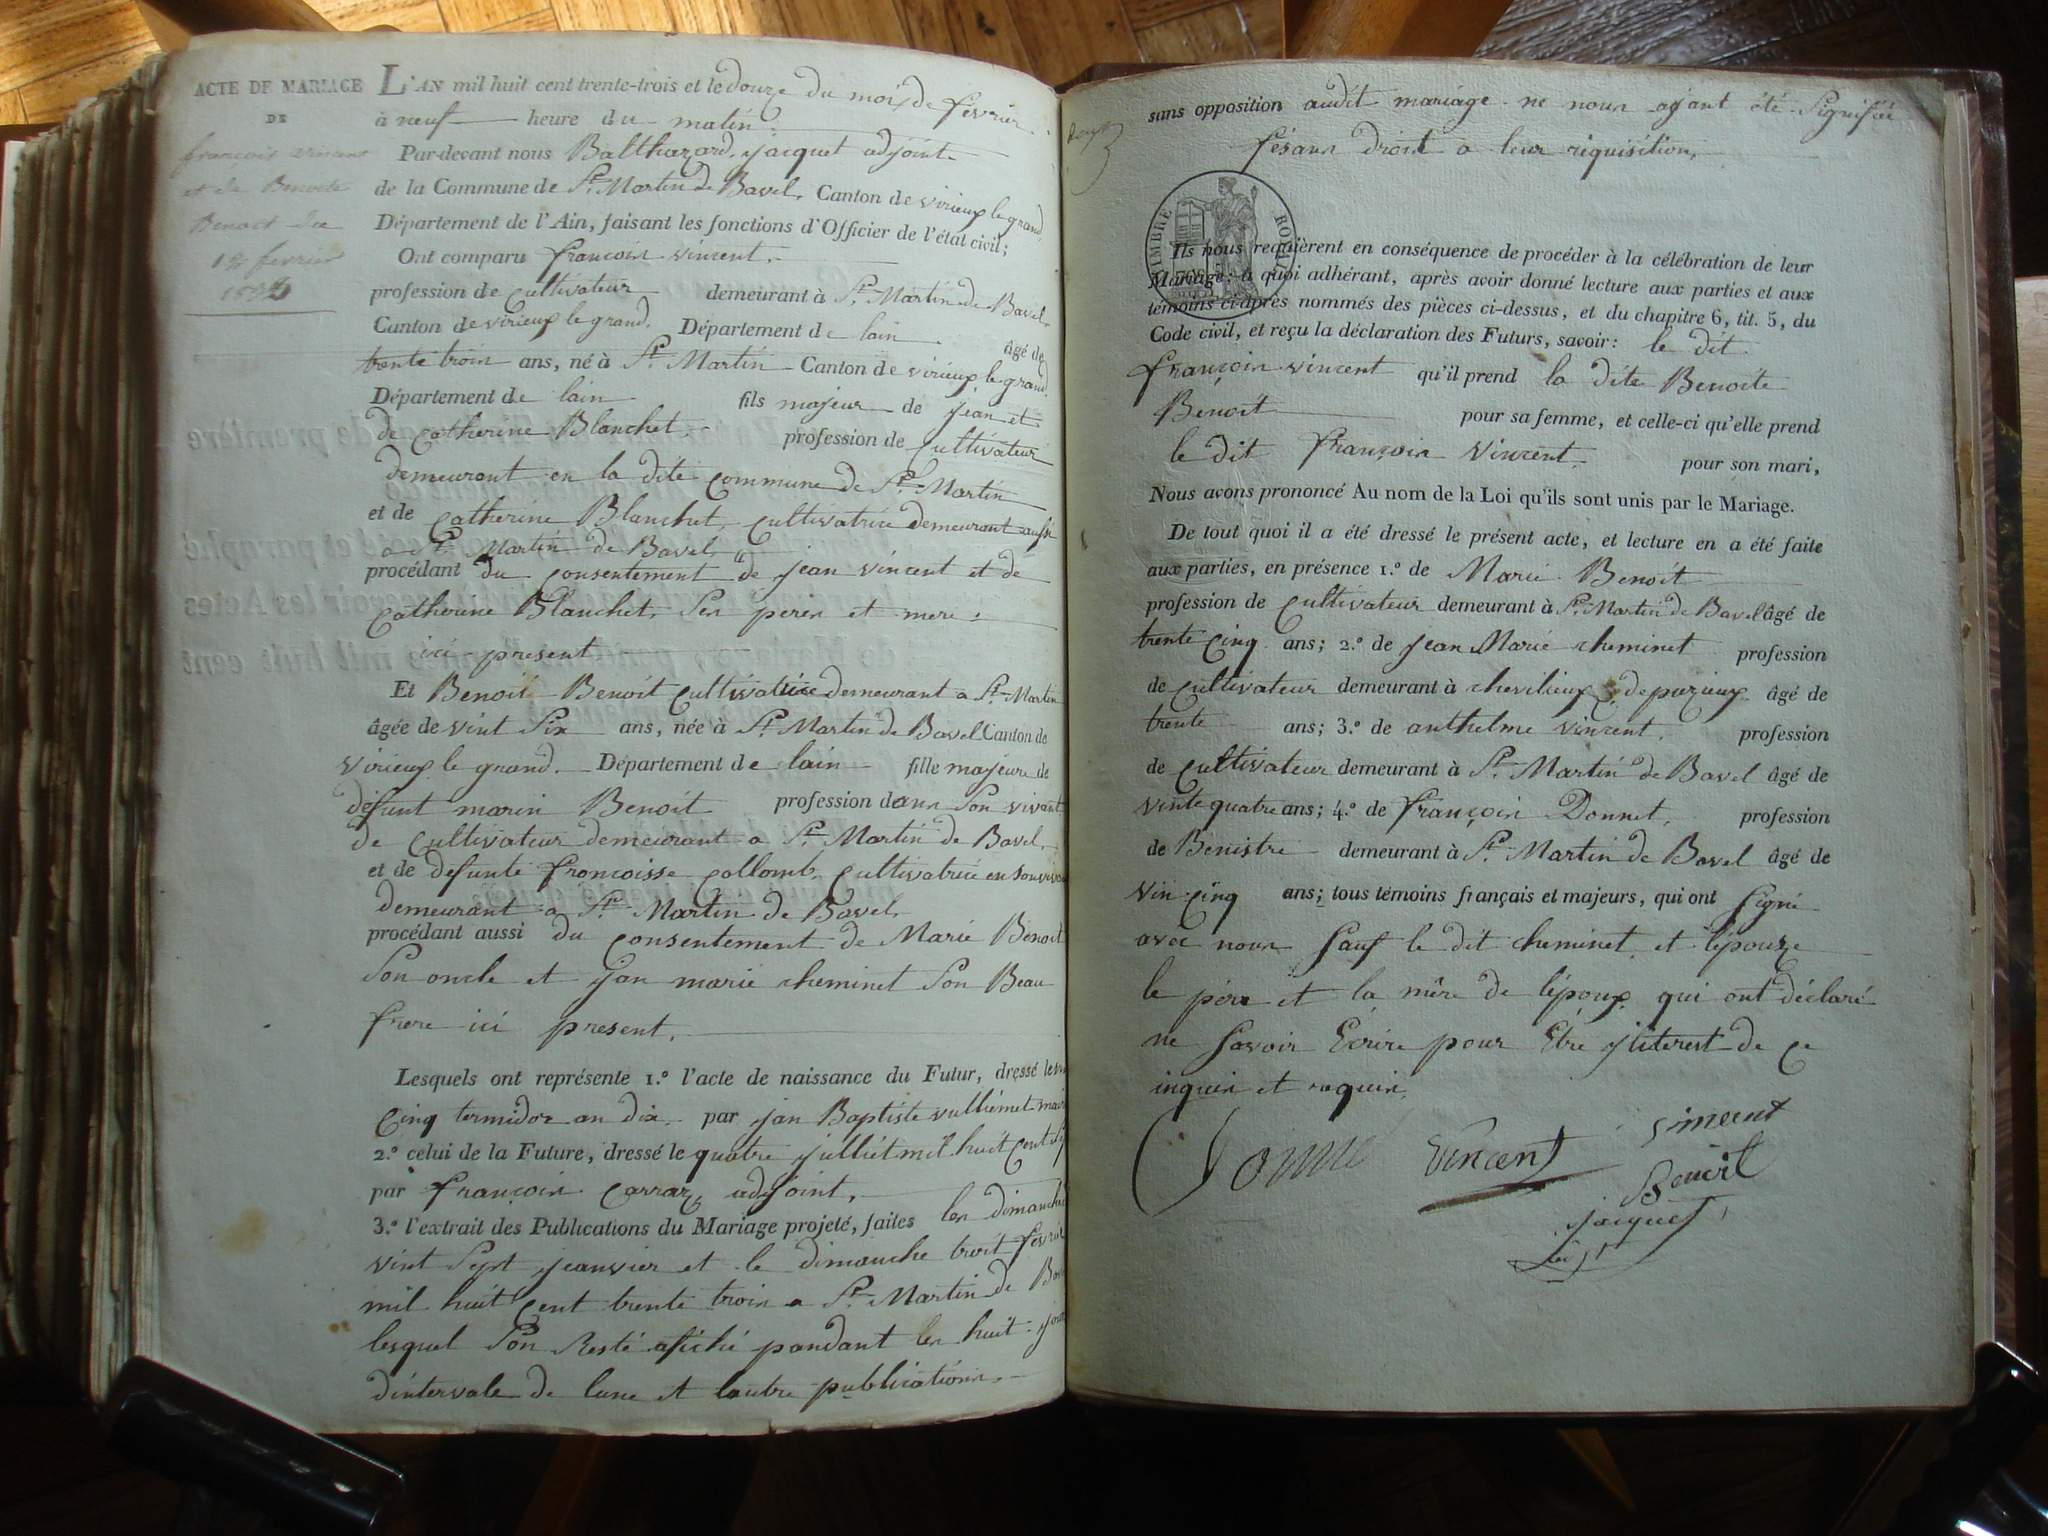 ACTE DE MARIAGE
DE
françois vincent
et de Benoite
Benoit du
12 fevrier
1833
L'AN mil huit cent trente-trois et le douze du mois de fevrier
à neuf heure du matin.
Par-devant nous Balthazard jacquet adjoint
de la Commune de St. Martin de Bavel, Canton de virieux le grand,
Département de l'Ain, faisant les fonctions d'Officier de l'état civil;
Ont comparu françois vincent,
profession de cultivateur demeurant à St. Martin de Bavel,
Canton de virieux le grand, Département de lain âgé de
trente trois ans, né à St. Martin Canton de virieux le grand
Département de lain fils majeur de jean et
de catherine Blanchet, profession de cultivateur
demeurant en la dite commune de St. Martin
et de catherine Blanchet, cultivatrice demeurant aussi
a St. Martin de Bavel,
procédant du consentement de jean vincent et de
catherine Blanchet, ses peres et mere:
ici present
Et Benoit Benoit cultivatrice demeurant a St. Martin
âgée de vint six ans, née à St. Martin de Bavel Canton de
virieux le grand. Département de lain fille majeure de
defunt marin Benoit profession de ans son vivant
de cultivateur demeurant a St. Martin de Bavel,
et de defunte francoisse collomb, cultivatrice en son viva
demeurant a St. Martin de Bavel,
procédant aussi du consentement de Marie Benoit
son oncle et jan marie cheminet son Beau
frere ici present,
Lesquels ont représente 1.º l'acte de naissance du Futur, dressé le
cinq termidor an dix, par jan Baptiste vulliemet mair
2.º celui de la Future, dressé le quatre julliet mil huit cent
par françois carraz adjoint,
3.º l'extrait des Publications du Mariage projeté, faites les dimanche
vint sept jeanvier et le dimanche troit fevrie
mil huit cent trente trois a St. Martin de Bav
lesquel son resté afiché pandant les huit jour
dintervale de lune et lautre publications.
sans opposition audit mariage ne nous ayant été signifiée
fesans droit a leur riquisition,
TIMBRE ROYAL
Ils nous requièrent en conséquence de procéder à la célébration de leur
Mariage; à quoi adhérant, après avoir donné lecture aux parties et aux
témoins ci-après nommés des pièces ci-dessus, et du chapitre 6, tit. 5, du
Code civil, et reçu la déclaration des Futurs, savoir: le dit
françois vincent qu'il prend la dite Benoite
Benoit pour sa femme, et celle-ci qu'elle prend
le dit françois vincent, pour son mari,
Nous avons prononcé Au nom de la Loi qu'ils sont unis par le Mariage.
De tout quoi il a été dressé le présent acte, et lecture en a été faite
aux parties, en présence 1.º de Marie Benoit
profession de cultivateur demeurant à St. Martin de Bavel âgé de
trente cinq ans; 2.º de jean Marie cheminet profession
de cultivateur demeurant à chevilieux de puzieux âgé de
trente ans; 3.º de anthelme vincent, profession
de cultivateur demeurant à St. Martin de Bavel âgé de
vinte quatre ans; 4.º de françois Donnet, profession
de Benistre demeurant à St. Martin de Bavel âgé de
vin cinq ans; tous témoins français et majeurs, qui ont signé
avec nous sauf le dit cheminet et lépouze
le père et la mère de lépoux qui ont déclaré
ne savoir Ecrire pour Etre jliterest de ce
inquis et requis,
vincent
Vincent
Benoit
jacquet